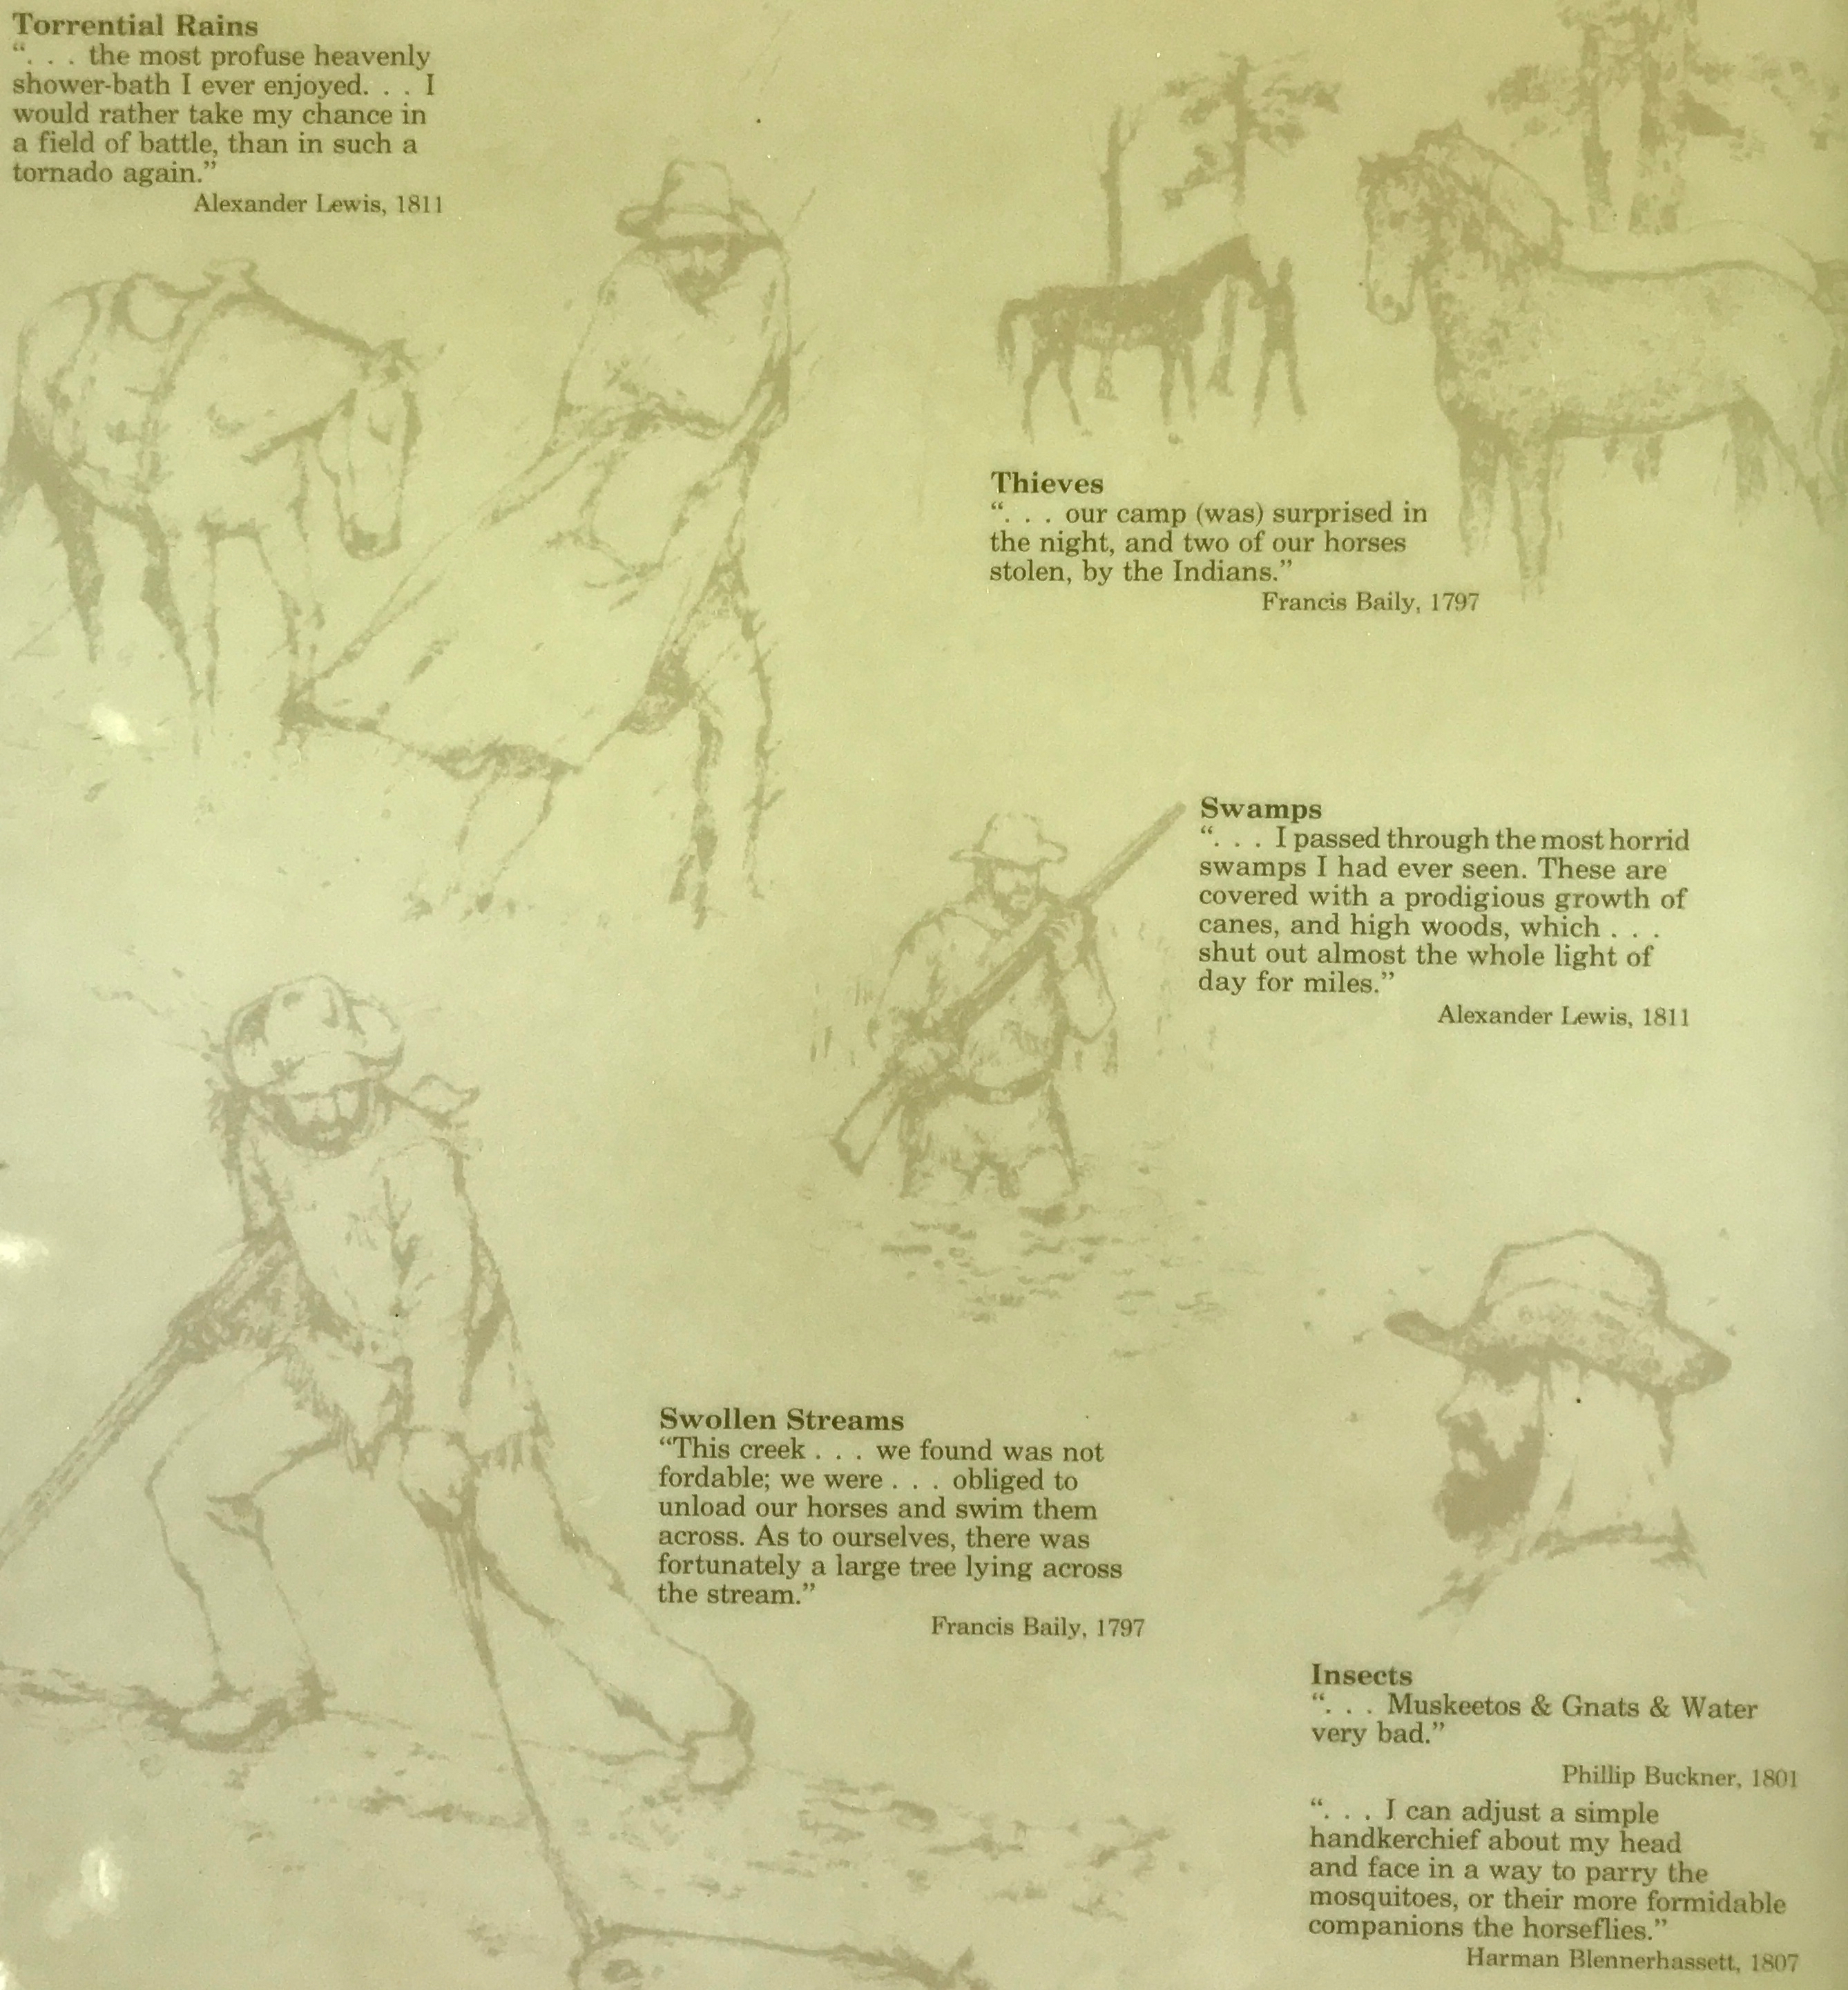 Torrential Rains
“. . . the most profuse heavenly
shower-bath I ever enjoyed. . . I
would rather take my chance in
a field of battle, than in such a
tornado again.”
Alexander Lewis, 1811
Thieves
“. . . our camp (was) surprised in
the night, and two of our horses
stolen, by the Indians.”
Francis Baily, 1797
Swamps
“. . . I passed through the most horrid
swamps I had ever seen. These are
covered with a prodigious growth of
canes, and high woods, which . . .
shut out almost the whole light of
day for miles.”
Alexander Lewis, 1811
Swollen Streams
“This creek . . . we found was not
fordable; we were . . . obliged to
unload our horses and swim them
across. As to ourselves, there was
fortunately a large tree lying across
the stream.”
Francis Baily, 1797
Insects
“. . . Muskeetos & Gnats & Water
very bad.”
Phillip Buckner, 1801
“. . . I can adjust a simple
handkerchief about my head
and face in a way to parry the
mosquitoes, or their more formidable
companions the horseflies.”
Harman Blennerhassett, 1807